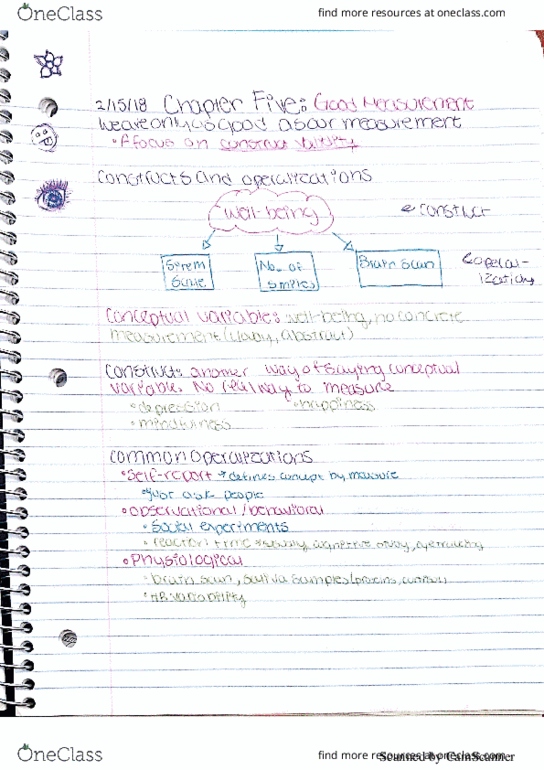 OneClass
find more resources at oneclass.com
2/15/18 Chapter Five: Good Measurement
we are only as good as our measurement
• A focus on construct validity
constructs and operalizations
well-being
← construct
5 item scale
No. of smiles
Brain scan
operal-
izations
Conceptual variable: well-being, no concrete
measurement (cloudy, abstract)
Construct: another way of saying conceptual
variable. No real way to measure
• depression
• happiness
• mindfulness
common operalizations
• Self-report → defines concept by measure
• just ask people
• observational / behavioral
• social experiments
• reaction time → usually cognitive study, eye tracking
• Physiological
• brain scan, saliva samples (proteins,
• HR variability
OneClass
find more resources at oneclass.com
Scanned by CamScanner